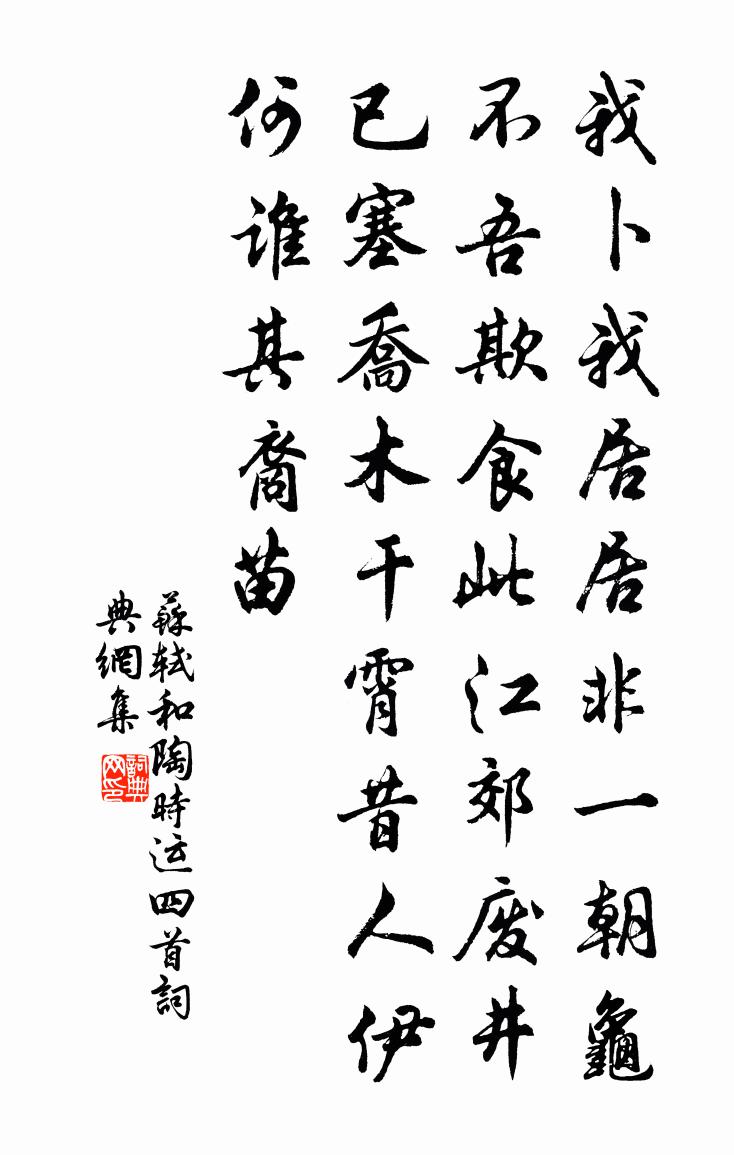 我卜我居居非一朝龜
不吾欺食此江郊废井
已塞喬木干霄昔人伊
何誰其裔苗
蘇軾和陶時运四首詞
典網集
詞典
网印